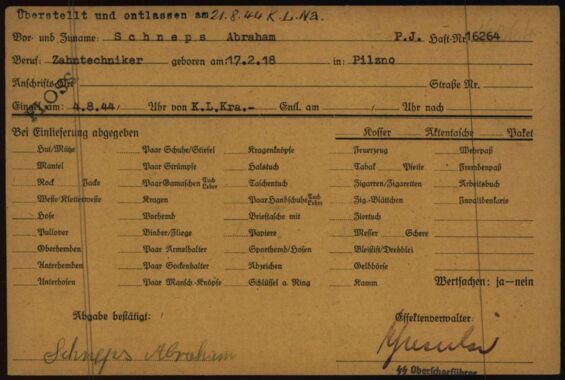 Überstellt und entlassen am 21.8.44 K.L.Na.
Vor- und Zuname: Schneps Abraham P.J. Haft-Nr. 16264
Beruf: Zahntechniker geboren am: 17.2.18 in: Pilzno
Anschrifts-Ort Straße Nr.
Eingel. am: 4.8.44 Uhr von K.L.Kra.- Entl. am Uhr nach
Bei Einlieferung abgegeben Koffer Aktentasche Paket
Hut/Mütze Paar Schuhe/Stiefel Kragenknöpfe Feuerzeug Wehrpaß
Mantel Paar Strümpfe Halstuch Tabak Pfeife Fremdenpaß
Rock Jacke Paar Gamaschen Tuch Leder Taschentuch Zigarren/Zigaretten Arbeitsbuch
Weste/Kletterweste Kragen Paar Handschuhe Tuch Leder Zig.-Blättchen Invalidenkarte
Hose Vorhemd Brieftasche mit Ziertuch
Pullover Binder/Fliege Papiere Messer Schere
Oberhemden Paar Armelhalter Sporthemd/Hosen Bleistift/Drehblei
Unterhemden Paar Sockenhalter Abzeichen Geldbörse
Unterhosen Paar Mansch.-Knöpfe Schlüssel a. Ring Kamm Wertsachen: ja—nein
Abgabe bestätigt: Effektenverwalter:
Schneps Abraham
SS Oberscharführer